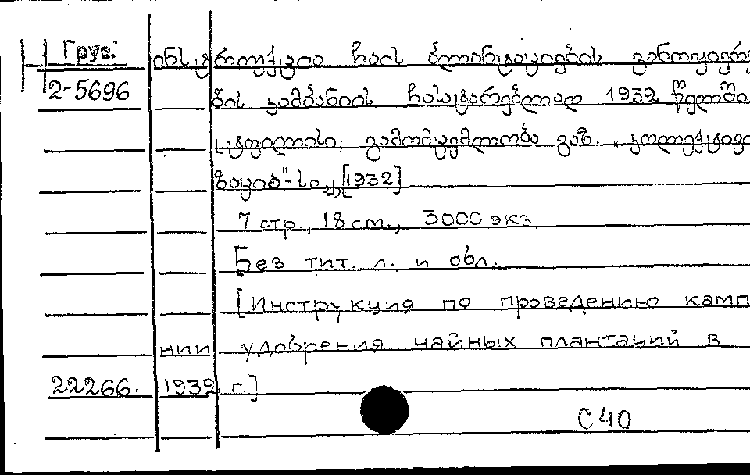 Груз.
2-5696
ინსტრუქცია ჩაის პლანტაციების განოყიერე
ბის კამპანიის ჩასატარებლად 1932 წელში
ტფილისი, გამომცემლობა გაზ. „კოლექტივი
ზაცია"-სი, [1932]
7 стр., 18 см., 3000 экз.
Без тит. л. и обл.
[Инструкция по проведению кампа
нии удобрения чайных плантаций в
22266. 1932 г.]
С 40